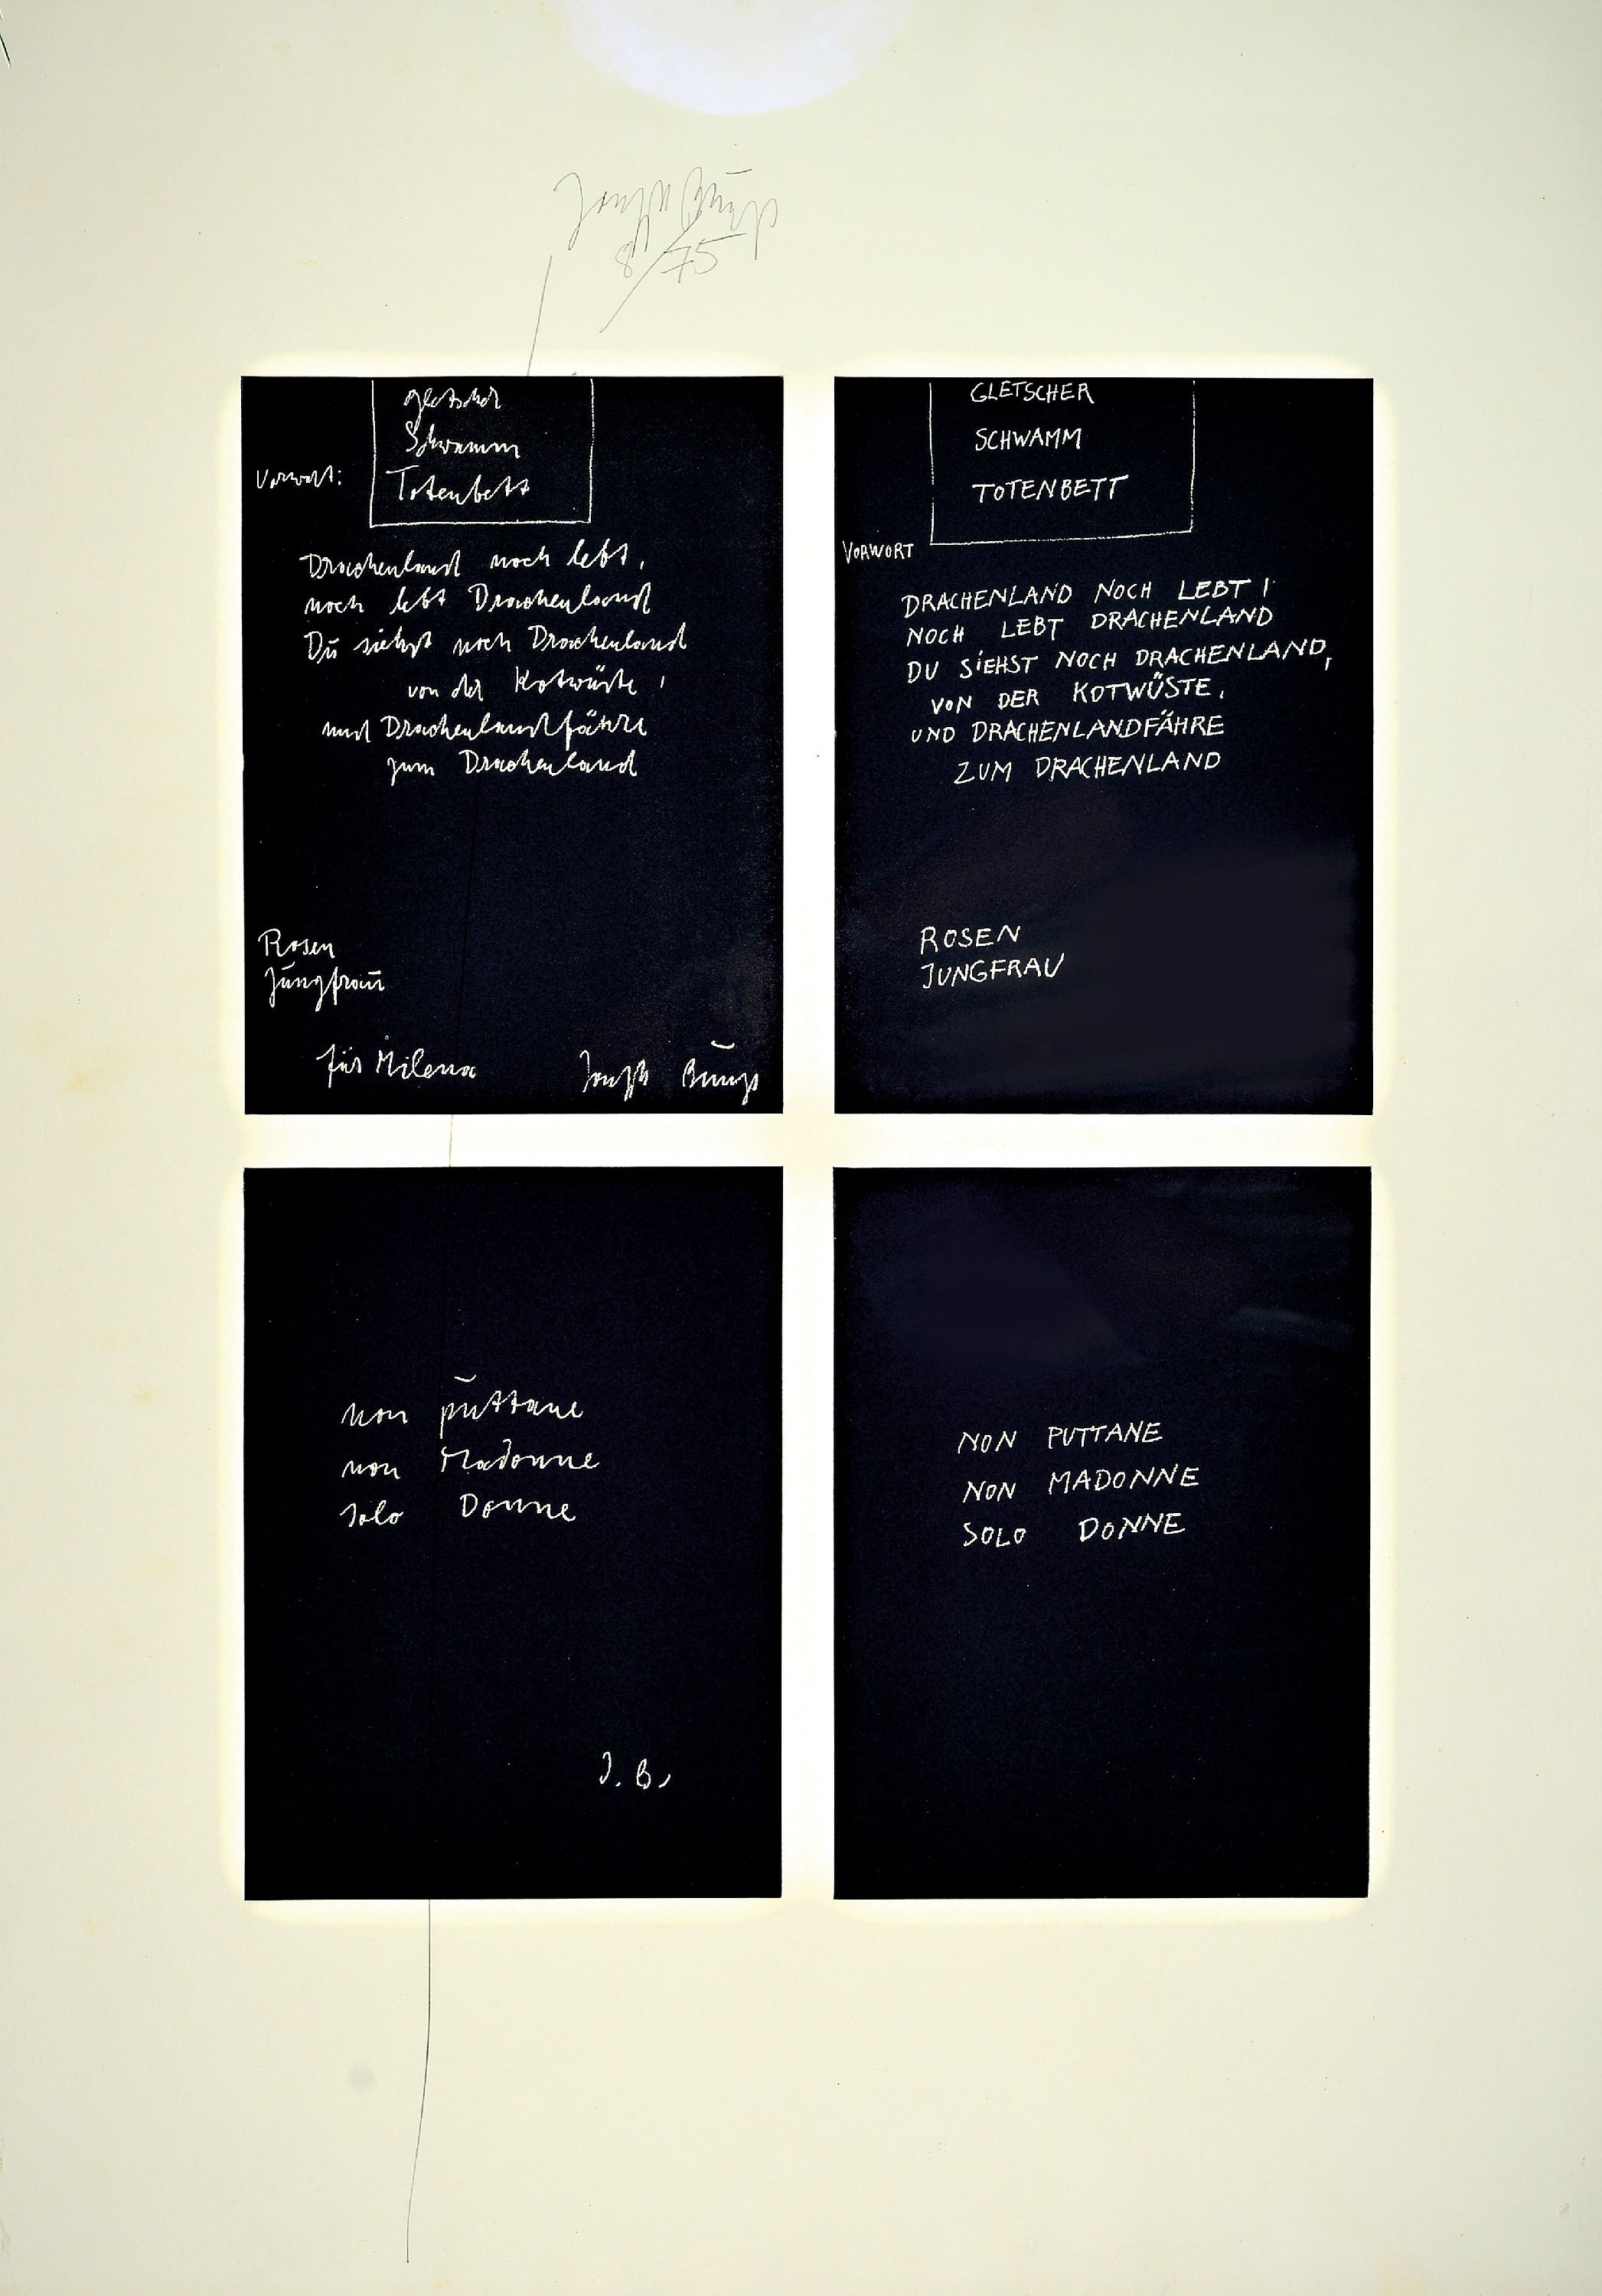 Joseph Beuys
8/75
gletscher
Schwamm
Vorwort:
Totenbett
Drachenland noch lebt,
noch lebt Drachenland
Du siehst noch Drachenland
von der Kotwüste,
und Drachenlandfähre
zum Drachenland
Rosen
Jungfrau
für Milena
Joseph Beuys
GLETSCHER
SCHWAMM
TOTENBETT
VORWORT
DRACHENLAND NOCH LEBT,
NOCH LEBT DRACHENLAND
DU SIEHST NOCH DRACHENLAND,
VON DER KOTWÜSTE,
UND DRACHENLANDFÄHRE
ZUM DRACHENLAND
ROSEN
JUNGFRAU
non puttane
non Madonne
solo Donne
J. B.
NON PUTTANE
NON MADONNE
SOLO DONNE